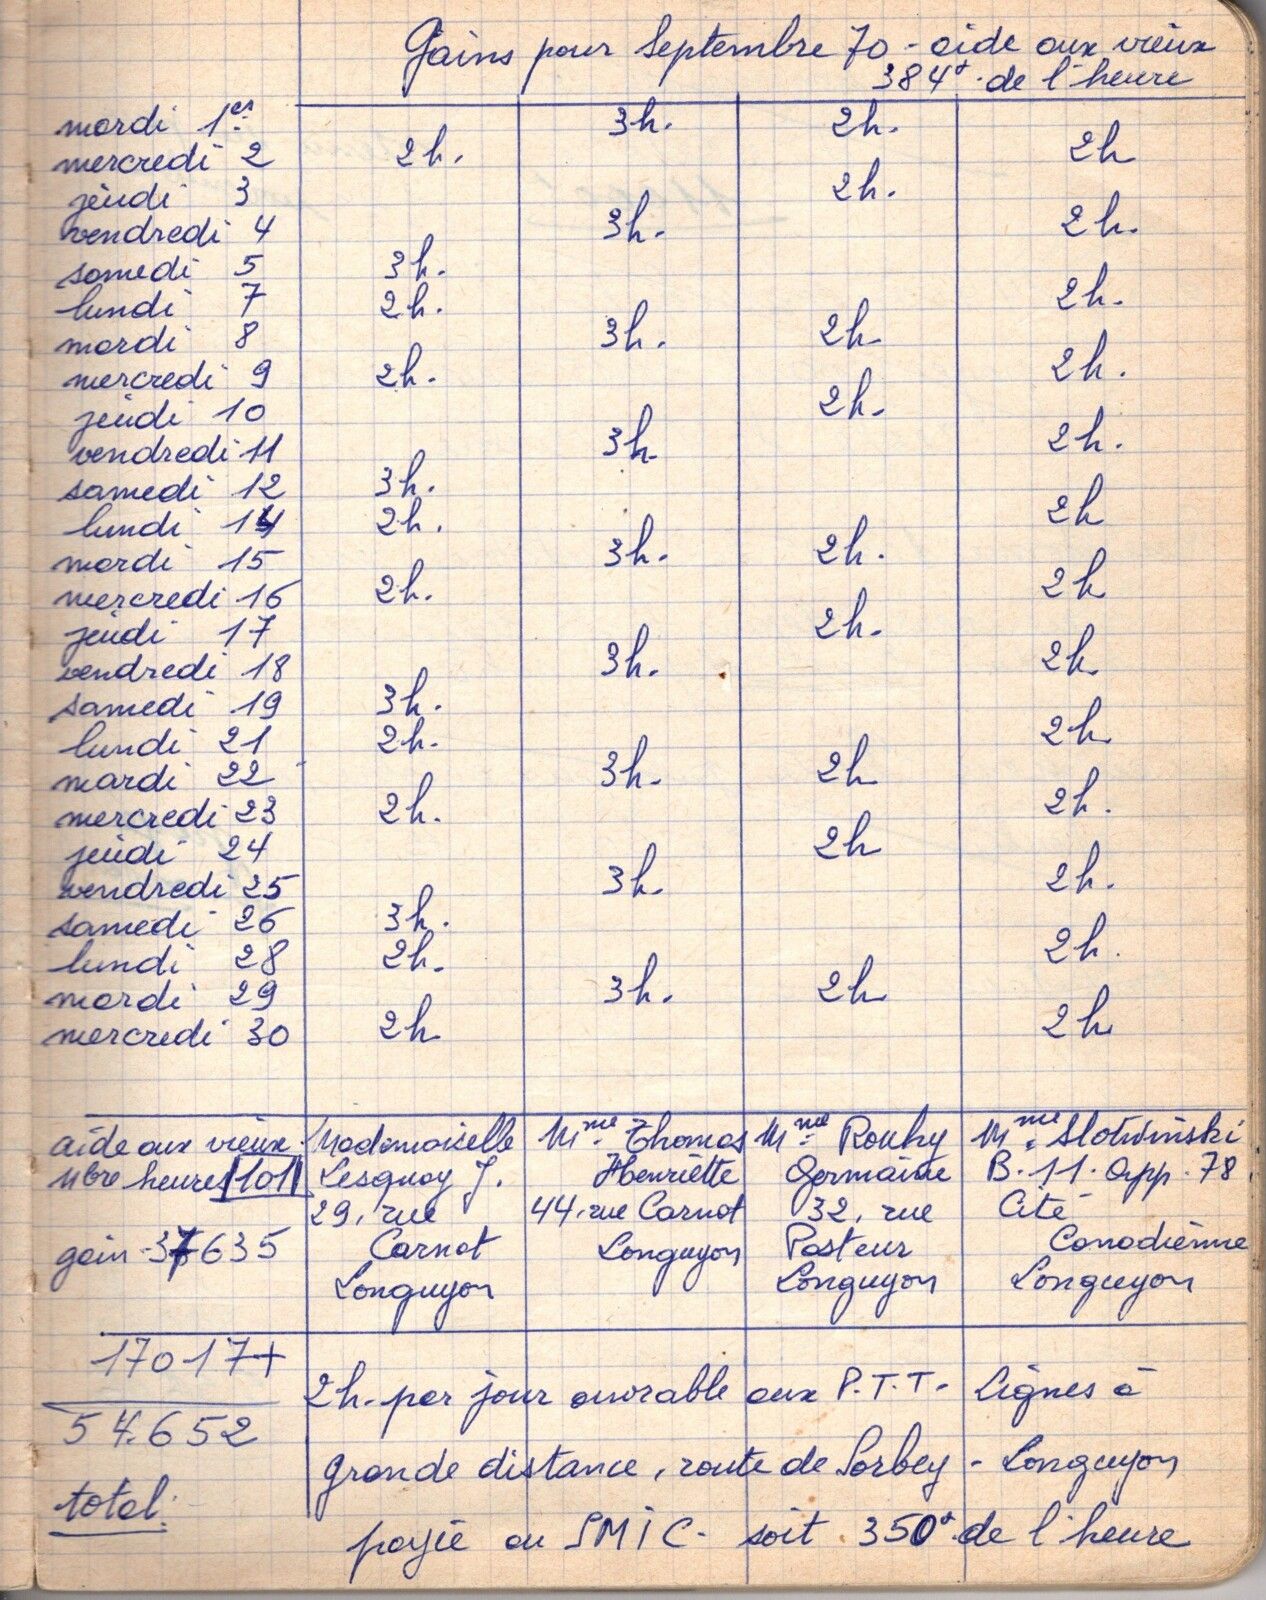 Gains pour Septembre 70 - aide aux vieux
384f. de l'heure
mardi 1er. 3h. 2h.
mercredi 2 2h. 2h
jeudi 3 2h.
vendredi 4 3h. 2h.
samedi 5 3h.
lundi 7 2h. 2h.
mardi 8 3h. 2h.
mercredi 9 2h. 2h.
jeudi 10 2h.
vendredi 11 3h. 2h.
samedi 12 3h.
lundi 14 2h. 2h
mardi 15 3h. 2h.
mercredi 16 2h. 2h
jeudi 17 2h.
vendredi 18 3h. 2h.
samedi 19 3h.
lundi 21 2h. 2h.
mardi 22 3h. 2h
mercredi 23 2h. 2h.
jeudi 24 2h
vendredi 25 3h. 2h.
samedi 26 3h.
lundi 28 2h. 2h.
mardi 29 3h. 2h
mercredi 30 2h. 2h.
aide aux vieux.
nbre heures 101
gain - 37635
Mademoiselle
Lesquoy J.
29, rue
Carnot
Longuyon
Mme. Thomas
Henriette
44, rue Carnot
Longuyon
Mme Rouhy
Germaine
32, rue
Pasteur
Longuyon
Mme. Slotwinski
B. 11. app. 78
Cité
Canadienne
Longuyon
17017+
54.652
total:
2h. par jour ouvrable aux P.T.T. Lignes à
grande distance, route de Sorbey - Longuyon
payée au SMIC - soit 350f. de l'heure